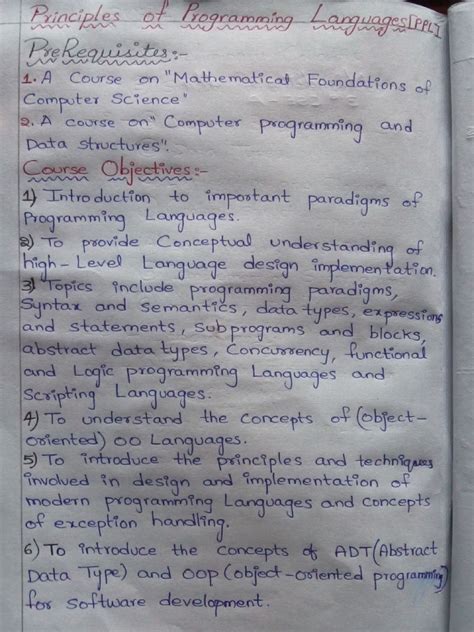 Principles of Programming Languages[PPL]
PreRequisites:-
1. A Course on "Mathematical Foundations of
Computer Science"
2. A course on "Computer programming and
Data structures".
Course Objectives:-
1) Introduction to important paradigms of
Programming Languages.
2) To provide Conceptual understanding of
high-Level Language design implementation.
3) Topics include programming paradigms,
Syntax and Semantics, data types, expressions
and statements, subprograms and blocks,
abstract data types, Concurrency, functional
and Logic programming Languages and
Scripting Languages.
4) To understand the concepts of (object-
oriented) OO Languages.
5) To introduce the principles and techniques
involved in design and implementation of
modern programming Languages and concepts
of exception handling.
6) To introduce the concepts of ADT(Abstract
Data Type) and OOP (object-oriented programming)
for software development.